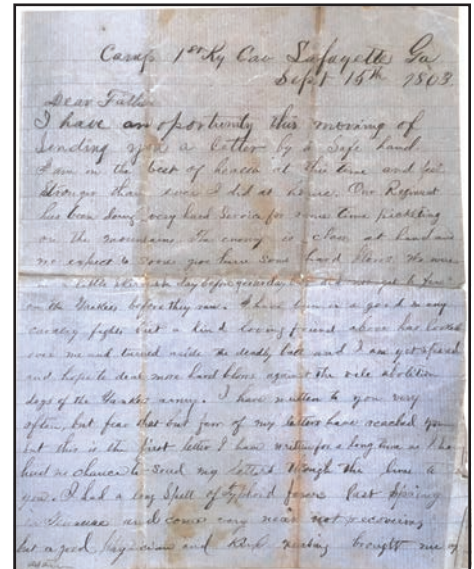 Camp 1st Ky Cav Lafayette Ga
Sept 15th 1863
Dear Father
I have an oportunity this morning of
sending you a letter by a safe hand.
I am in the best of health at this time and feel
stronger than ever I did at home. Our Regiment
has been doing very hard service for some time picketing
on the mountains. The enemy is close at hand and
we expect to soon give them some hard blows. We were
in a little skirmish day before yesterday but did not get to fire
on the Yankees before they ran. I have been in a good many
cavalry fights but a kind loving friend above has looked
over me and turned aside the deadly ball and I am yet spared
and hope to deal more hard blows against the vile abolition
dogs of the Yankee army. I have written to you very
often, but fear that but few of my letters have reached you
but this is the first letter I have written for a long time as I have
had no chance to send my letters through the lines to
you. I had a long spell of typhoid fever last Spring
in and come very near not recovering
but a good physician and kind nursing brought me up
again